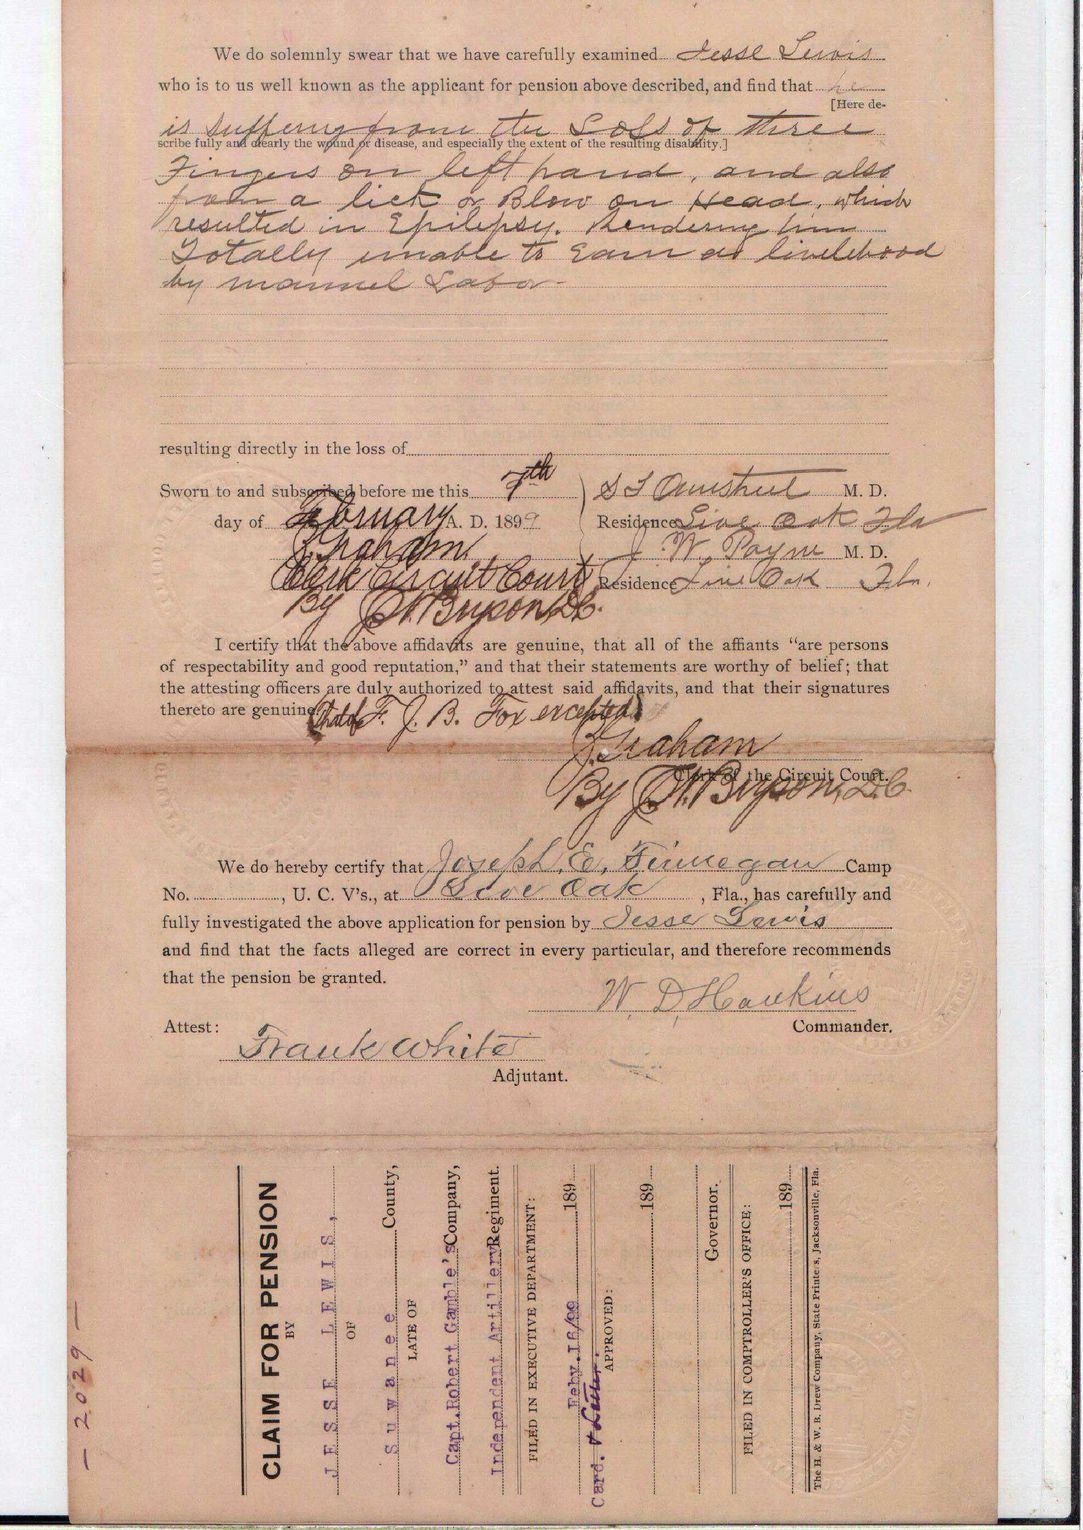 We do solemnly swear that we have carefully examined Jesse Lewis
who is to us well known as the applicant for pension above described, and find that he
[Here de-
is Suffering from the Loss of three
scribe fully and clearly the wound or disease, and especially the extent of the resulting disability.]
Fingers on left hand, and also
from a lick or Blow on Head, which
resulted in Epilipsy. Rendering him
Totally unable to Earn a livelehood
by manuel Labor
resulting directly in the loss of
Sworn to and subscribed before me this 7th
S T M. D.
day of February A. D. 1899
Residence Live Oak Fla
Graham
J. W. Payne M. D.
Clerk Circuit Court
Residence Live Oak Fla.
By Bryson, D.C.
I certify that the above affidavits are genuine, that all of the affiants "are persons
of respectability and good reputation," and that their statements are worthy of belief; that
the attesting officers are duly authorized to attest said affidavits, and that their signatures
thereto are genuine. (That of F. J. B. Fox excepted)
Graham
Clerk of the Circuit Court.
By Bryson, D.C.
We do hereby certify that Joseph E. Finnegan Camp
No. , U. C. V's., at Live Oak , Fla., has carefully and
fully investigated the above application for pension by Jesse Lewis
and find that the facts alleged are correct in every particular, and therefore recommends
that the pension be granted.
W. D. Hawkins
Attest: Commander.
Frank White
Adjutant.
- 2029 -
CLAIM FOR PENSION
BY
JESSE LEWIS,
OF
Suwanee County,
LATE OF
Capt.Robert Gamble's Company,
Independent Artillery Regiment.
FILED IN EXECUTIVE DEPARTMENT:
Feby.16/99 189
Card. & Letter.
APPROVED:
189
Governor.
FILED IN COMPTROLLER'S OFFICE:
189
The H. & W. B. Drew Company, State Printers, Jacksonville, Fla.